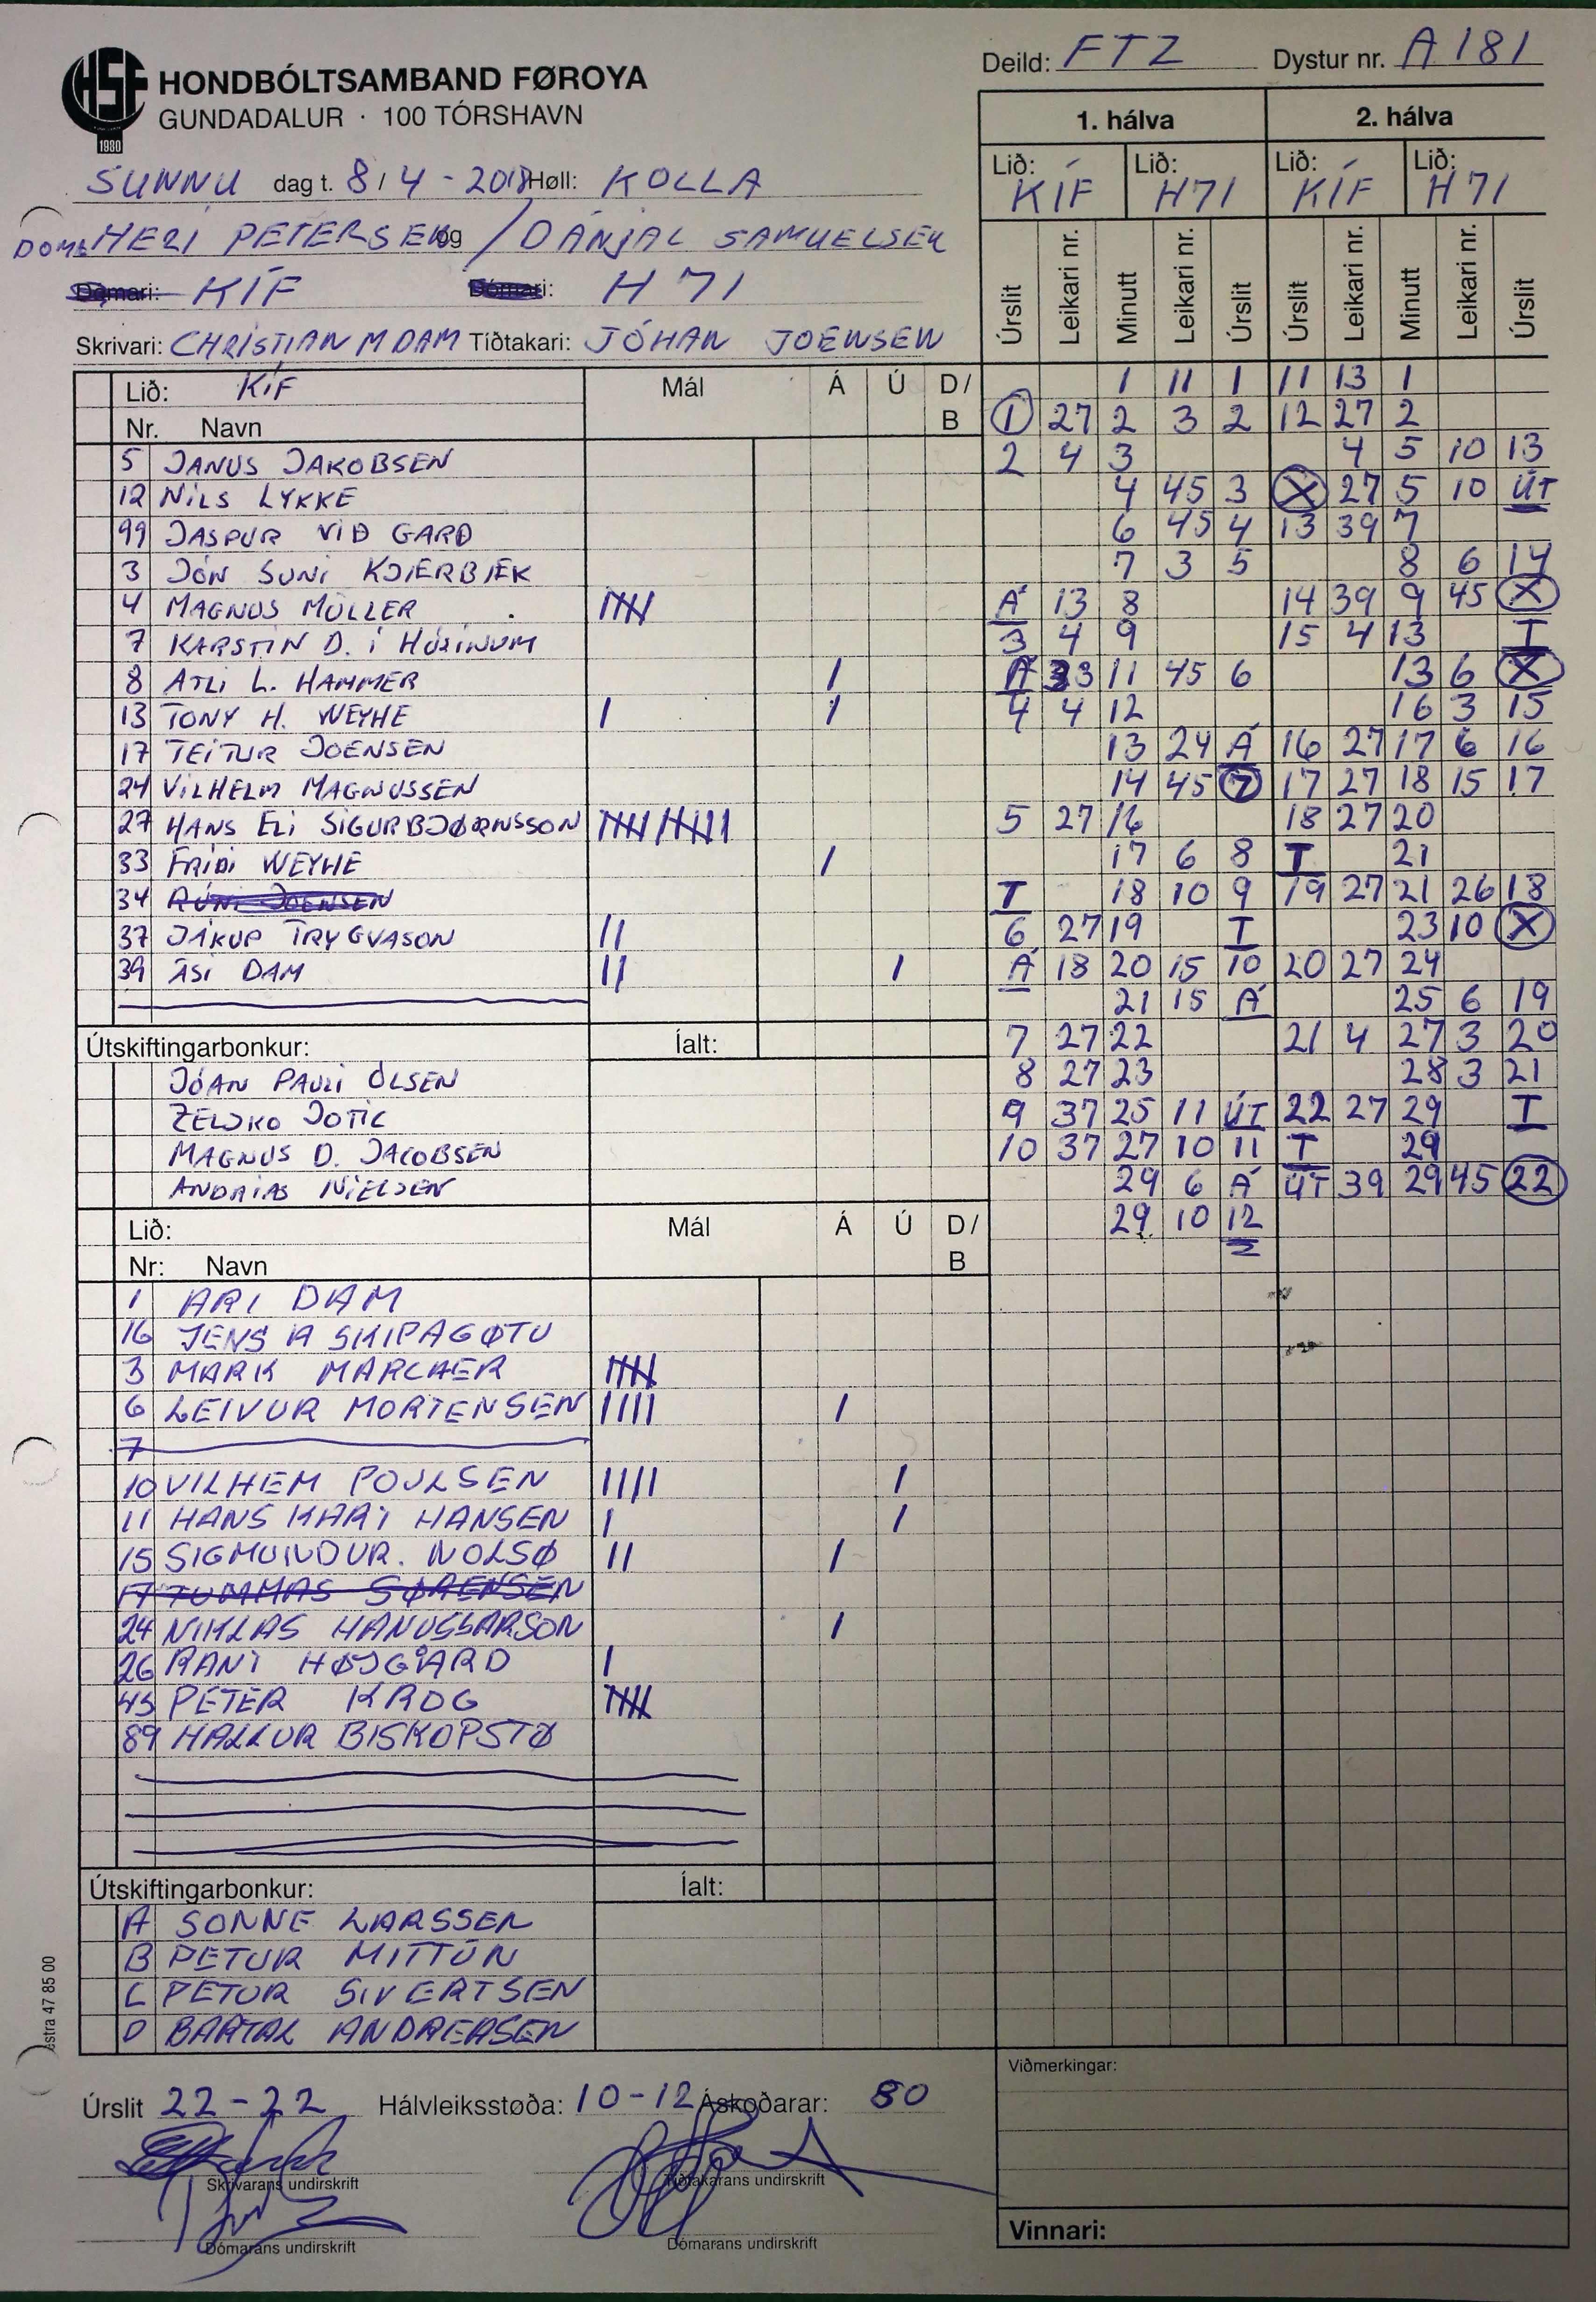 HSF
1980
HONDBÓLTSAMBAND FØROYA
GUNDADALUR · 100 TÓRSHAVN
Deild: FTZ Dystur nr. A 181
SUNNU dag t. 8/4-2018 Høll: KOLLA
DOMS HERI PETERSEN og / DÁNJAL SAMUELSEN
KÍF H 71
Skrivari: CHRISTIAN M DAM Tíðtakari: JÓHAN JOENSEN
1. hálva 2. hálva
Lið: KÍF Lið: H71 Lið: KÍF Lið: H 71
Úrslit Leikari nr. Minutt Leikari nr. Úrslit Úrslit Leikari nr. Minutt Leikari nr. Úrslit
1 11 1 11 13 1
1 27 2 3 2 12 27 2
2 4 3 4 5 10 13
4 45 3 X 27 5 10 ÚT
6 45 4 13 39 7
7 3 5 8 6 14
Á 13 8 14 39 9 45 X
3 4 9 15 4 13 T
Á 33 11 45 6 13 6 X
4 4 12 16 3 15
13 24 Á 16 27 17 6 16
14 45 7 17 27 18 15 17
5 27 16 18 27 20
17 6 8 T 21
T 18 10 9 19 27 21 26 18
6 27 19 T 23 10 X
Á 18 20 15 10 20 27 24
21 15 Á 25 6 19
7 27 22 21 4 27 3 20
8 27 23 28 3 21
9 37 25 11 ÚT 22 27 29 T
10 37 27 10 11 T 29
29 6 Á ÚT 39 29 45 22
29 10 12
Lið: KÍF Mál Á Ú D/
Nr. Navn B
5 JANUS JAKOBSEN
12 NILS LYKKE
99 JASPUR VIÐ GARÐ
3 JÓN SUNI KJERBÆK
4 MAGNUS MÜLLER IIIII
7 KARSTIN D. Í HÚSINUM
8 ATLI L. HAMMER I
13 TONY H. WEYHE I I
17 TEITUR JOENSEN
24 VILHELM MAGNUSSEN
27 HANS ELI SIGURBJØRNSSON IIIII IIIIII
33 FRIÐI WEYHE I
34 RÚNI JOENSEN
37 JÁKUP TRYGVASON II
39 ÁSI DAM II I
Útskiftingarbonkur: Íalt:
JÓAN PAULI OLSEN
ZELJKO JOTIC
MAGNUS D. JACOBSEN
ANDRIAS NIELSEN
Lið: Mál Á Ú D/
Nr: Navn B
1 ARI DAM
16 JENS A SKIPAGØTU
3 MARK MARCHER IIIII
6 LEIVUR MORTENSEN IIII I
7
10 VILHEM POULSEN IIII I
11 HANS KÁRI HANSEN I I
15 SIGMUNDUR. NOLSØ II I
17 TUMMAS SØRENSEN
24 NIKLAS HANUSSARSON I
26 RANI HØJGÅRD I
45 PETER KROG IIIII
89 HALLUR BISKOPSTØ
Útskiftingarbonkur: Íalt:
A SONNE LARSSEN
B PETUR MITTÚN
C PETUR SIVERTSEN
D BARTAL ANDREASEN
Viðmerkingar:
Úrslit 22-22 Hálvleiksstøða: 10-12 Áskoðarar: 80
Skrivarans undirskrift Tíðtakarans undirskrift
Dómarans undirskrift Dómarans undirskrift
Vinnari:
estra 47 85 00